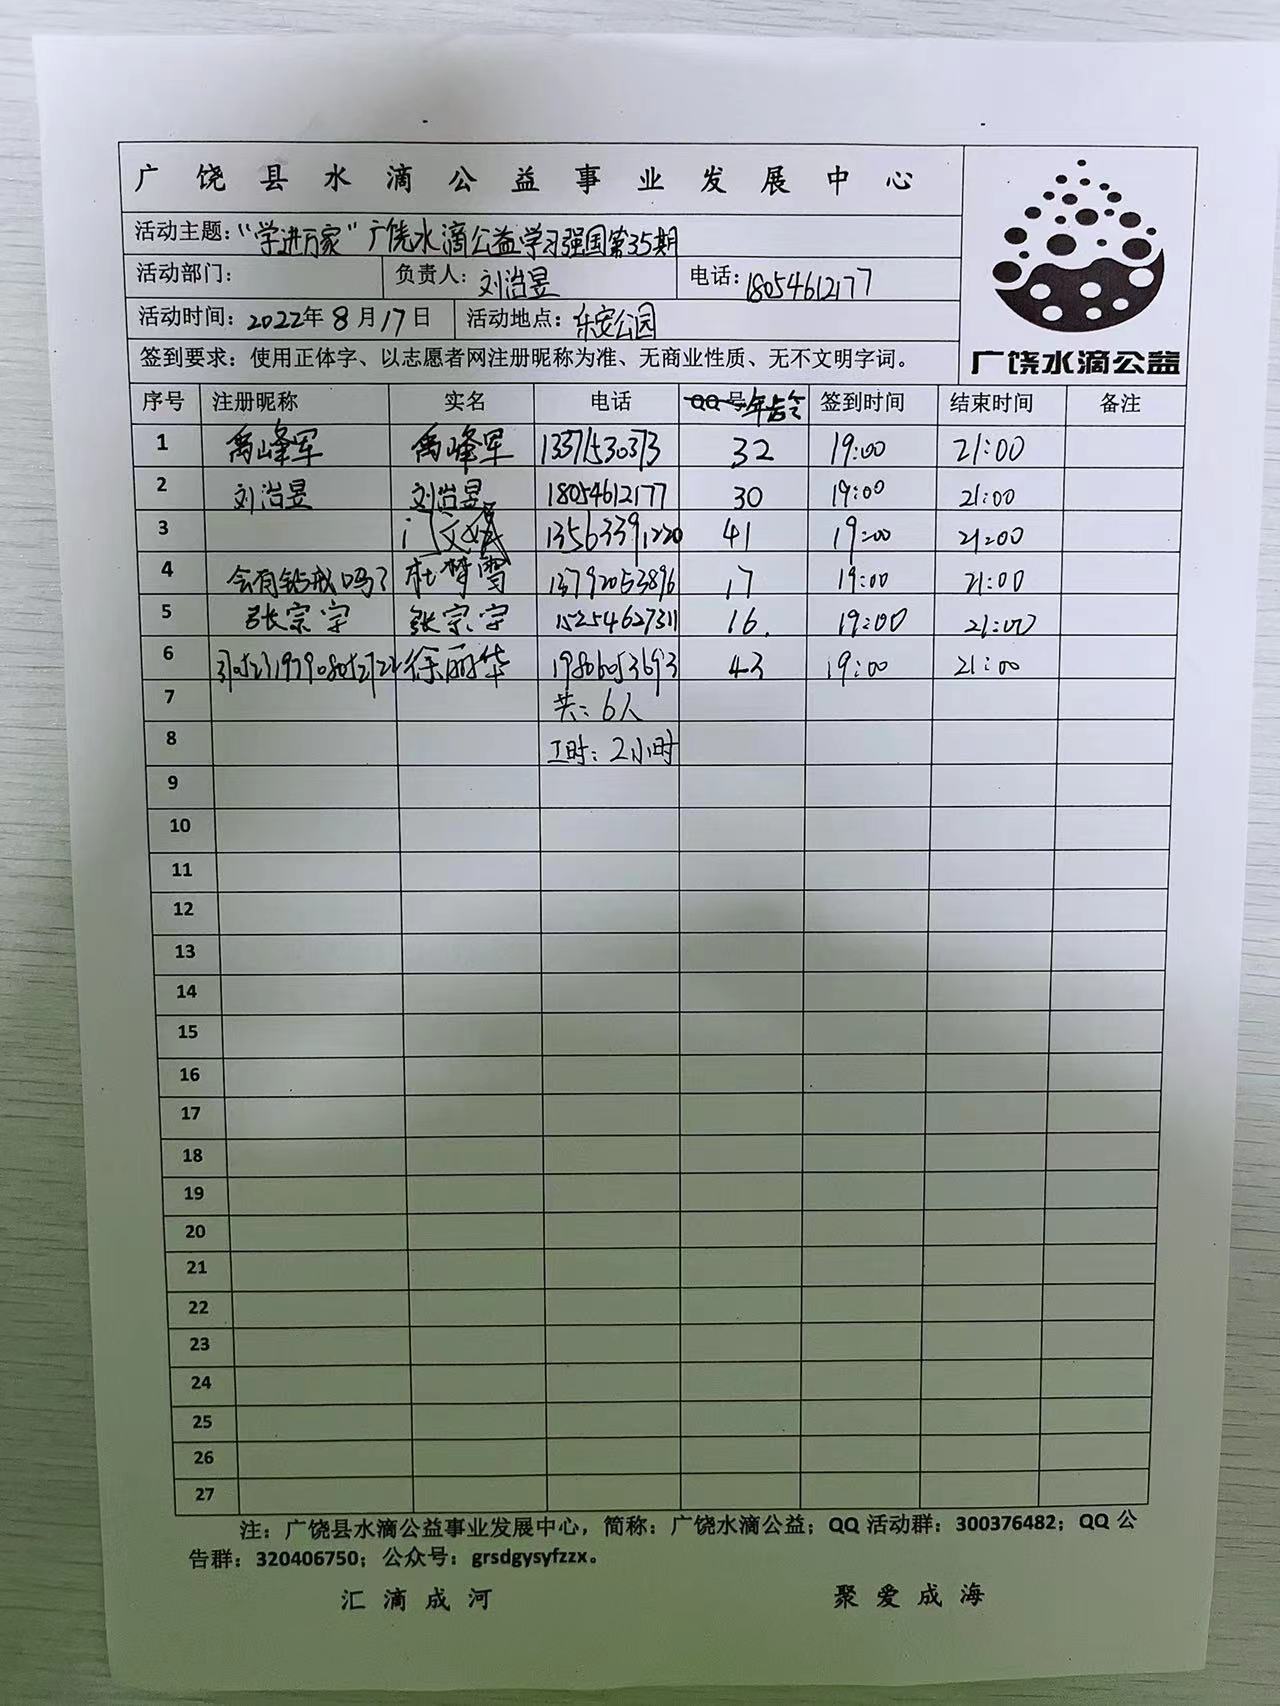 广饶县水滴公益事业发展中心
活动主题："学进万家"广饶水滴公益学习强国第35期
活动部门： 负责人：刘治昱 电话：18054612177
活动时间：2022年8月17日 活动地点：乐安公园
签到要求：使用正体字、以志愿者网注册昵称为准、无商业性质、无不文明字词。
广饶水滴公益
序号 注册昵称 实名 电话 QQ号 年龄 签到时间 结束时间 备注
1 禹峰军 禹峰军 13371530373 32 19:00 21:00
2 刘治昱 刘治昱 18054612177 30 19:00 21:00
3 门文 13563391220 41 19:00 21:00
4 会有钻戒吗? 杜梦雪 13792053896 17 19:00 21:00
5 张宗宇 张宗宇 15254627311 16. 19:00 21:00
6 徐丽华 19806053693 43 19:00 21:00
7 共：6人
8 工时：2小时
9
10
11
12
13
14
15
16
17
18
19
20
21
22
23
24
25
26
27
注：广饶县水滴公益事业发展中心，简称：广饶水滴公益；QQ活动群：300376482；QQ公
告群：320406750；公众号：grsdgysyfzzx。
汇滴成河 聚爱成海